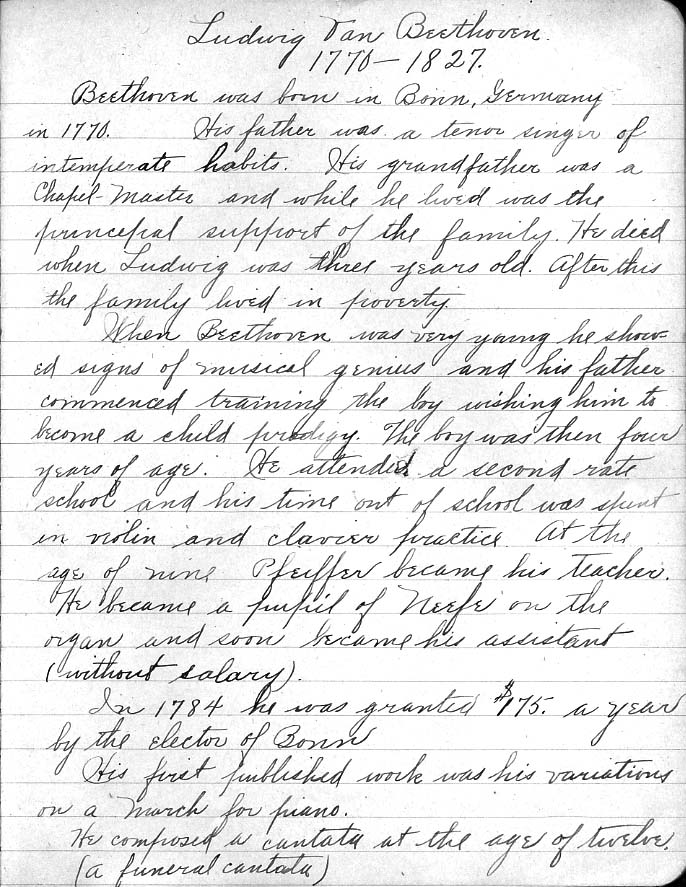 Ludwig Van Beethoven.
1770-1827.
Beethoven was born in Bonn, Germany
in 1770. His father was a tenor singer of
intemperate habits. His grandfather was a
Chapel-Master and while he lived was the
princepal support of the family. He died
when Ludwig was three years old. After this
the family lived in poverty
When Beethoven was very young he show-
ed signs of musical genius and his father
commenced training the boy wishing him to
become a child prodigy. The boy was then four
years of age. He attended a second rate
school and his time out of school was spent
in violin and clavier practice. At the
age of nine Pfeiffer became his teacher.
He became a pupil of Neefe on the
organ and soon became his assistant
(without salary).
In 1784 he was granted $175. a year
by the elector of Bonn
His first published work was his variations
on a March for piano.
He composed a cantata at the age of twelve.
(a funeral cantata)